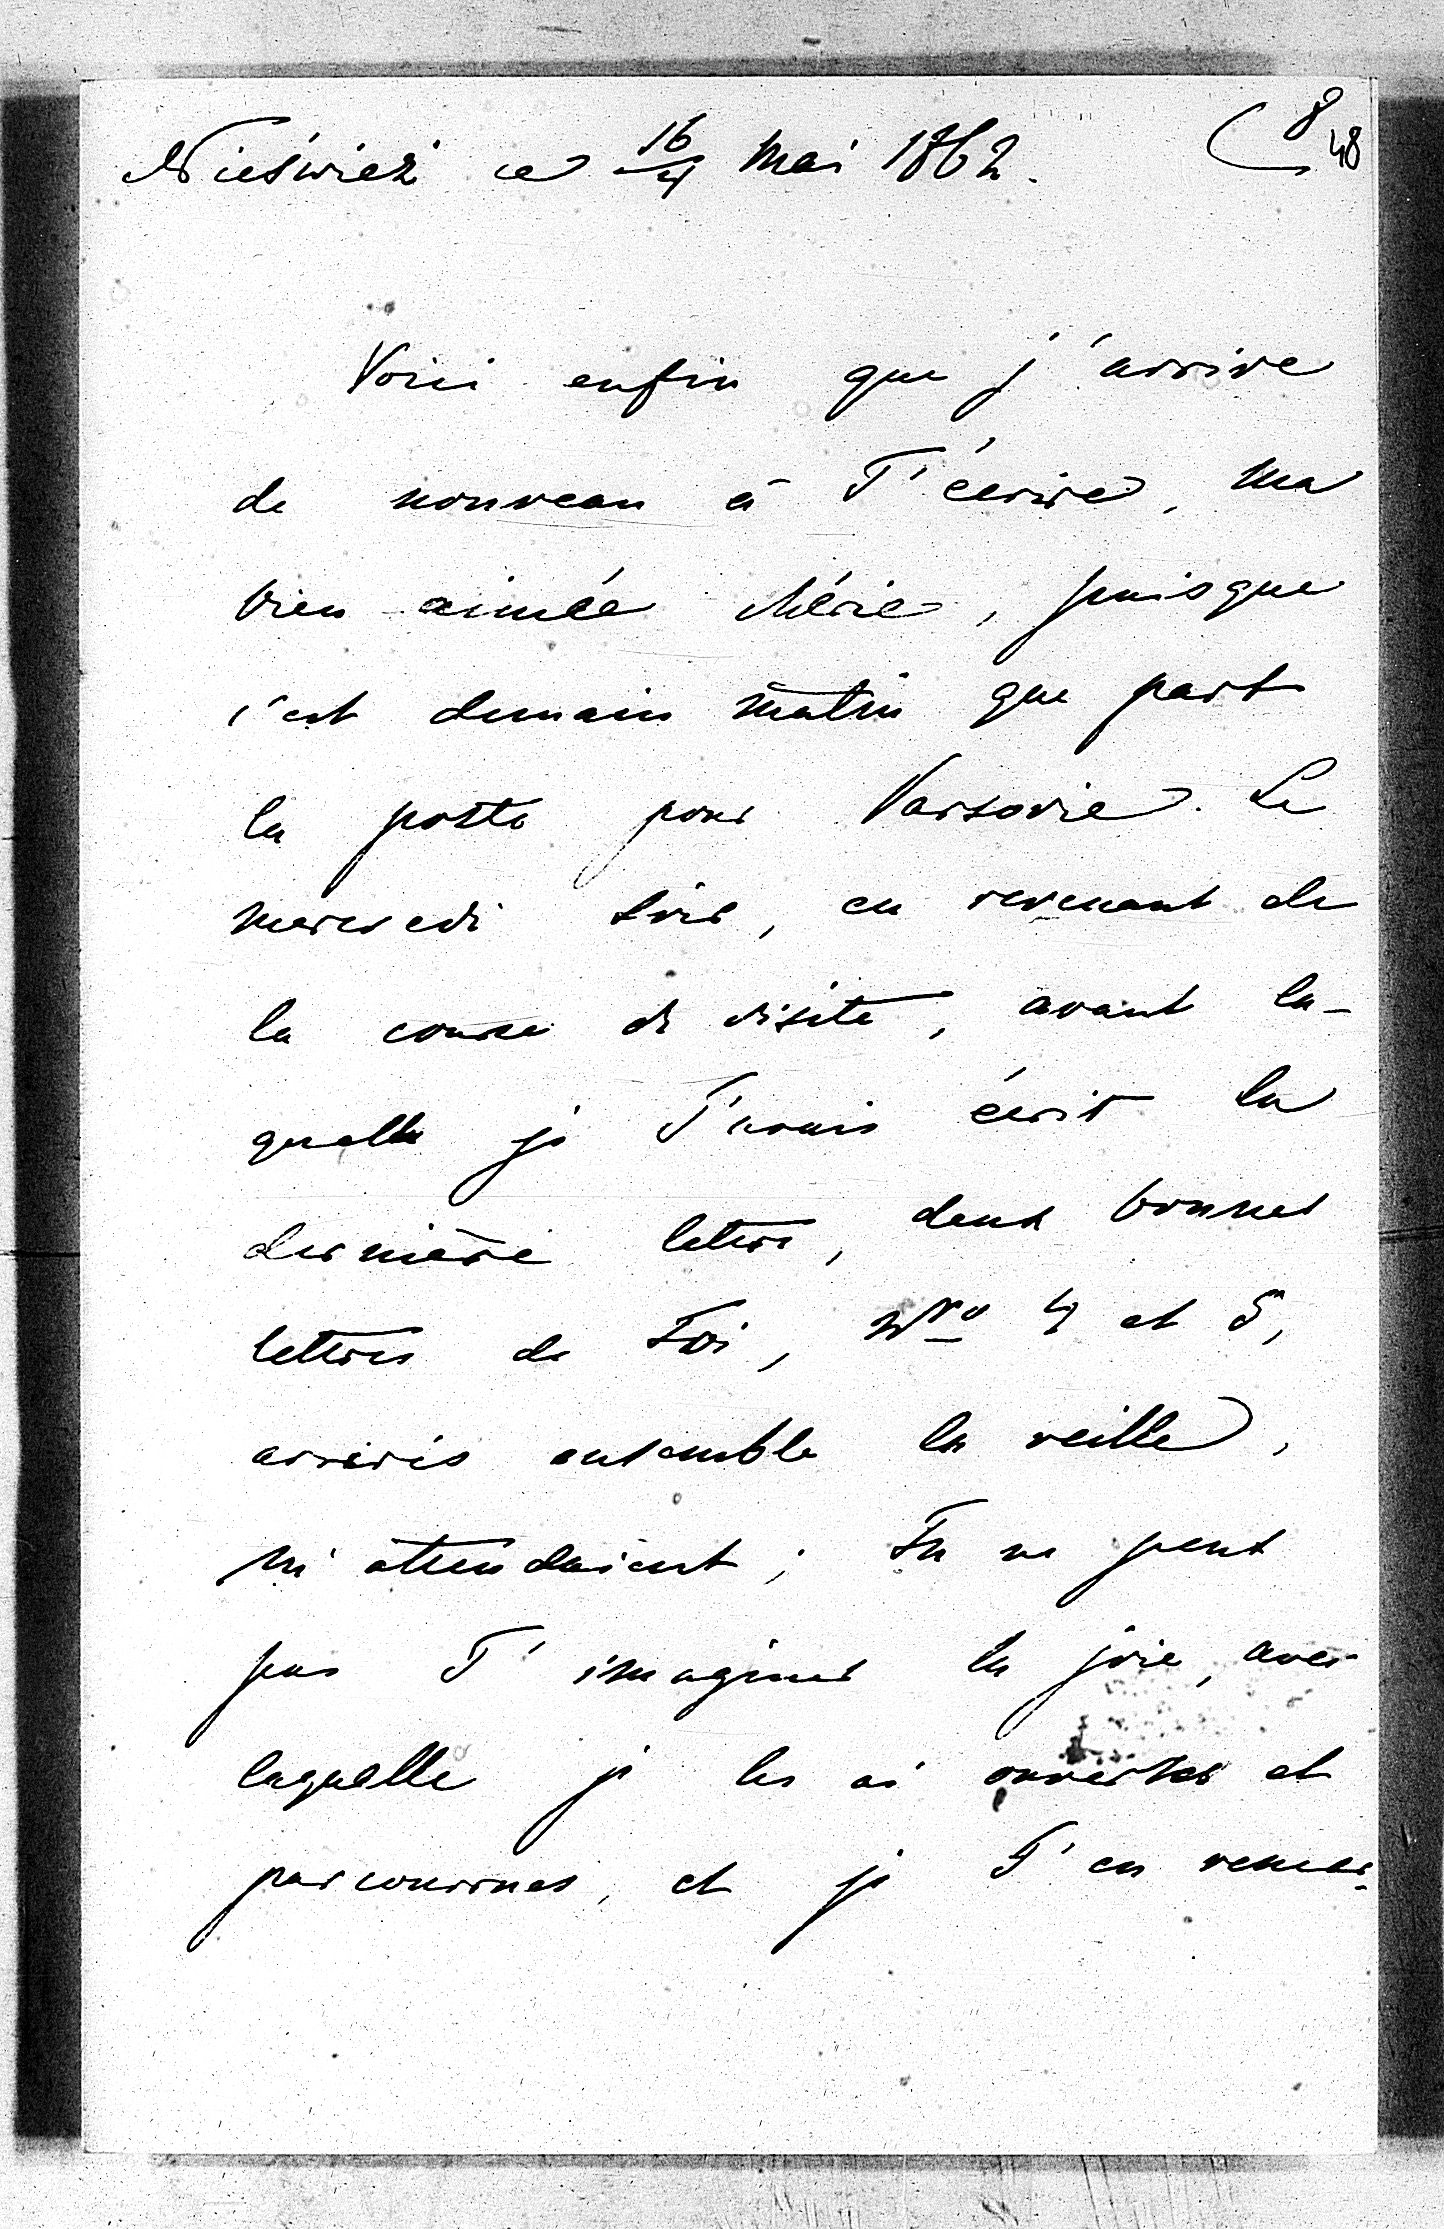 Nieśwież ce 16/4 Mai 1862.
8
48
Voici enfin que j'arrive
de nouveau à T'écrire, ma
bien aimée chérie, puisque
c'est demain matin que part
la poste pour Varsovie. Le
mercredi soir, en revenant de
la course de visite, avant la-
quelle je T'avais écrit la
dernière lettre, deux bonnes
lettres de Toi, Nro 4 et 5,
arrivés ensemble la veille,
m'attendaient; Tu ne peux
pas T'imaginer la joie, avec
laquelle je les ai ouvertes et
parcourues, et je T'en remer-